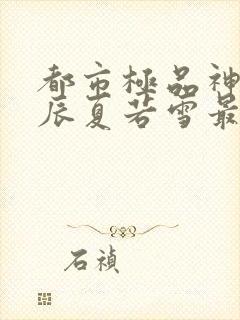 都市極品神
辰夏若雪最
石禎